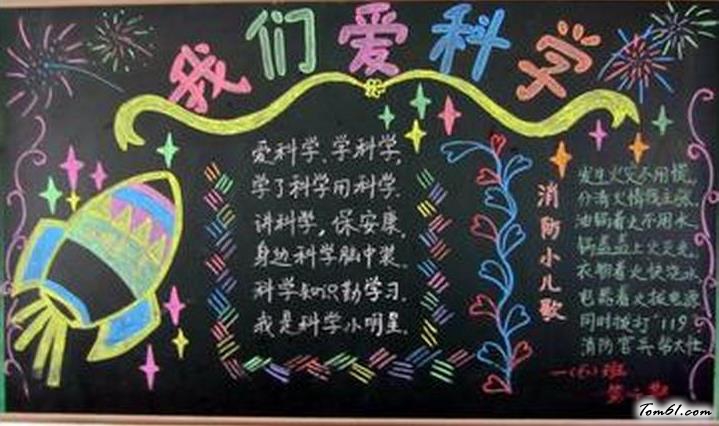 我们爱科学
爱科学、学科学,
学了科学用科学.
讲科学,保安康,
身边科学脑中装.
科学知识勤学习.
我是科学小明星.
消防小儿歌
发生火灾不用慌,
分清火情我主张.
油锅着火不用水,
锅盖盖上火灭光.
衣物着火快浇水,
电器着火拔电源
同时拨打"119"
消防官兵帮大忙
一(6)班
Tom61.com